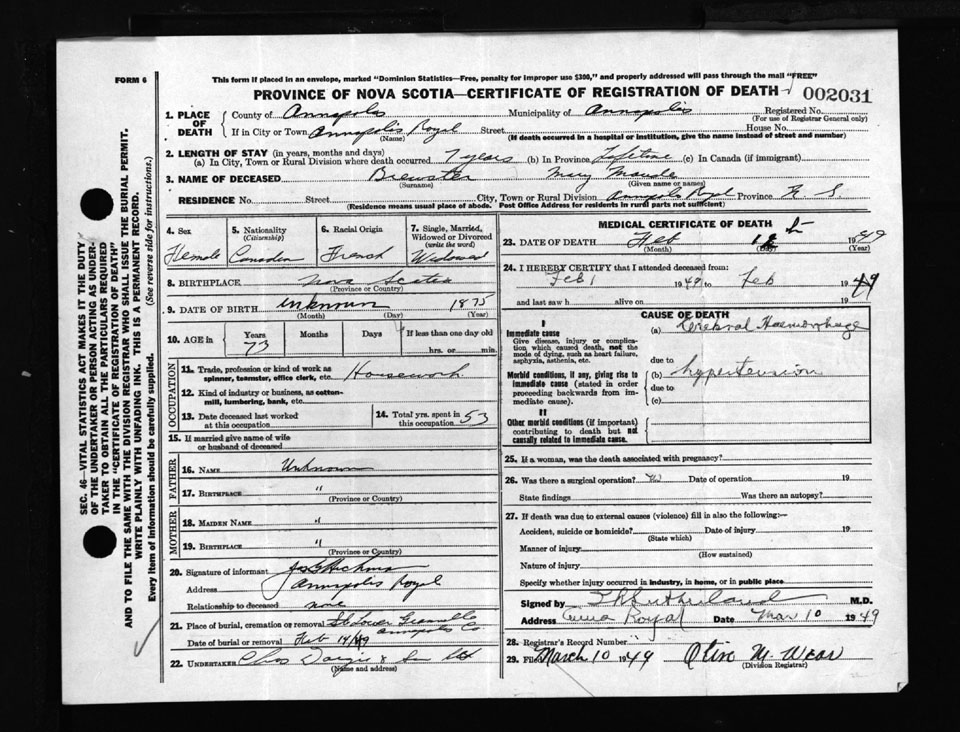 FORM 6
This form if placed in an envelope, marked "Dominion Statistics—Free, penalty for improper use $300," and properly addressed will pass through the mail "FREE"
PROVINCE OF NOVA SCOTIA—CERTIFICATE OF REGISTRATION OF DEATH
002031
1. PLACE OF DEATH
County of Annapolis Municipality of Annapolis Registered No.
(For use of Registrar General only)
If in City or Town Annapolis Royal Street House No.
(Name) (If death occurred in a hospital or institution, give the name instead of street and number)
2. LENGTH OF STAY (in years, months and days)
(a) In City, Town or Rural Division where death occurred 7 years (b) In Province Lifetime (c) In Canada (if immigrant)
3. NAME OF DECEASED Brewster Mary Maude
(Surname) (Given name or names)
RESIDENCE No. Street City, Town or Rural Division Annapolis Royal Province N. S.
(Residence means usual place of abode. Post Office Address for residents in rural parts not sufficient)
4. Sex
Female
5. Nationality
(Citizenship)
Canadian
6. Racial Origin
French
7. Single, Married, Widowed or Divorced
(write the word)
Widowed
8. BIRTHPLACE Nova Scotia
(Province or Country)
9. DATE OF BIRTH unknown 1875
(Month) (Day) (Year)
10. AGE in Years Months Days If less than one day old
73 hrs. or min.
OCCUPATION
11. Trade, profession or kind of work as Housework
spinner, teamster, office clerk, etc.
12. Kind of industry or business, as cotton-
mill, lumbering, bank, etc.
13. Date deceased last worked
at this occupation
14. Total yrs. spent in
this occupation 53
15. If married give name of wife
or husband of deceased
FATHER
16. NAME Unknown
17. BIRTHPLACE "
(Province or Country)
MOTHER
18. MAIDEN NAME "
19. BIRTHPLACE "
(Province or Country)
20. Signature of informant
Address Annapolis Royal
Relationship to deceased none
21. Place of burial, cremation or removal Lower Granville
Annapolis Co
Date of burial or removal Feb 14/49
22. UNDERTAKER
(Name and address)
MEDICAL CERTIFICATE OF DEATH
23. DATE OF DEATH Feb 1949
(Month) (Day) (Year)
24. I HEREBY CERTIFY that I attended deceased from:
Feb 1 1949 to Feb 1949
and last saw h alive on 19
CAUSE OF DEATH
I
Immediate cause
Give disease, injury or complication which caused death, not the mode of dying, such as heart failure, asphyxia, asthenia, etc.
(a) Cerebral Haemorrhage
due to
Morbid conditions, if any, giving rise to immediate cause (stated in order proceeding backwards from immediate cause).
(b) hypertension
due to
(c)
II
Other morbid conditions (if important) contributing to death but not causally related to immediate cause.
25. If a woman, was the death associated with pregnancy?
26. Was there a surgical operation? No Date of operation 19
State findings Was there an autopsy?
27. If death was due to external causes (violence) fill in also the following:—
Accident, suicide or homicide? Date of injury 19
(State which)
Manner of injury
(How sustained)
Nature of injury
Specify whether injury occurred in industry, in home, or in public place
Signed by Sutherland M.D.
Address Anna Royal Date Mar 10 1949
28. Registrar's Record Number
29. Filed March 10 1949 Olive M. Wear
(Division Registrar)
SEC. 46—VITAL STATISTICS ACT MAKES IT THE DUTY
OF THE UNDERTAKER OR PERSON ACTING AS UNDER-
TAKER TO OBTAIN ALL THE PARTICULARS REQUIRED
IN THE "CERTIFICATE OF REGISTRATION OF DEATH"
AND TO FILE THE SAME WITH THE DIVISION REGISTRAR WHO SHALL ISSUE THE BURIAL PERMIT.
WRITE PLAINLY WITH UNFADING INK. THIS IS A PERMANENT RECORD.
Every item of information should be carefully supplied. (See reverse side for instructions.)